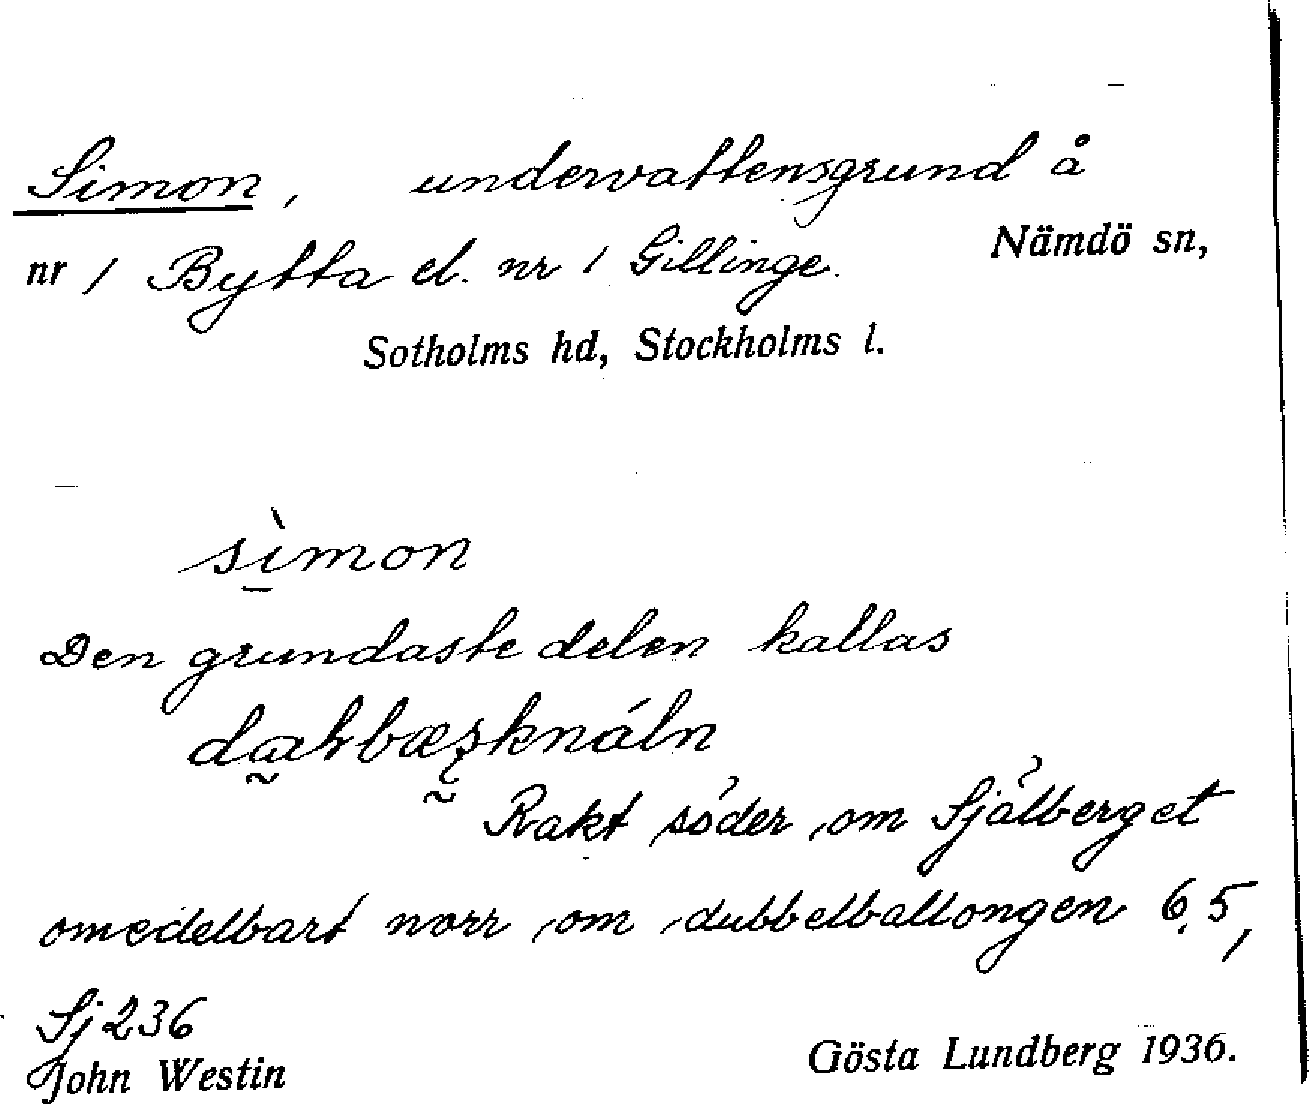 Simon, undervattensgrund å
nr 1 Bytta el. nr 1 Gillinge. Nämdö sn,
Sotholms hd, Stockholms l.
sìmon
Den grundaste delen kallas
Rakt söder om Själberget
omedelbart norr om dubbelballongen 6.5,
Sj 236
John Westin Gösta Lundberg 1936.